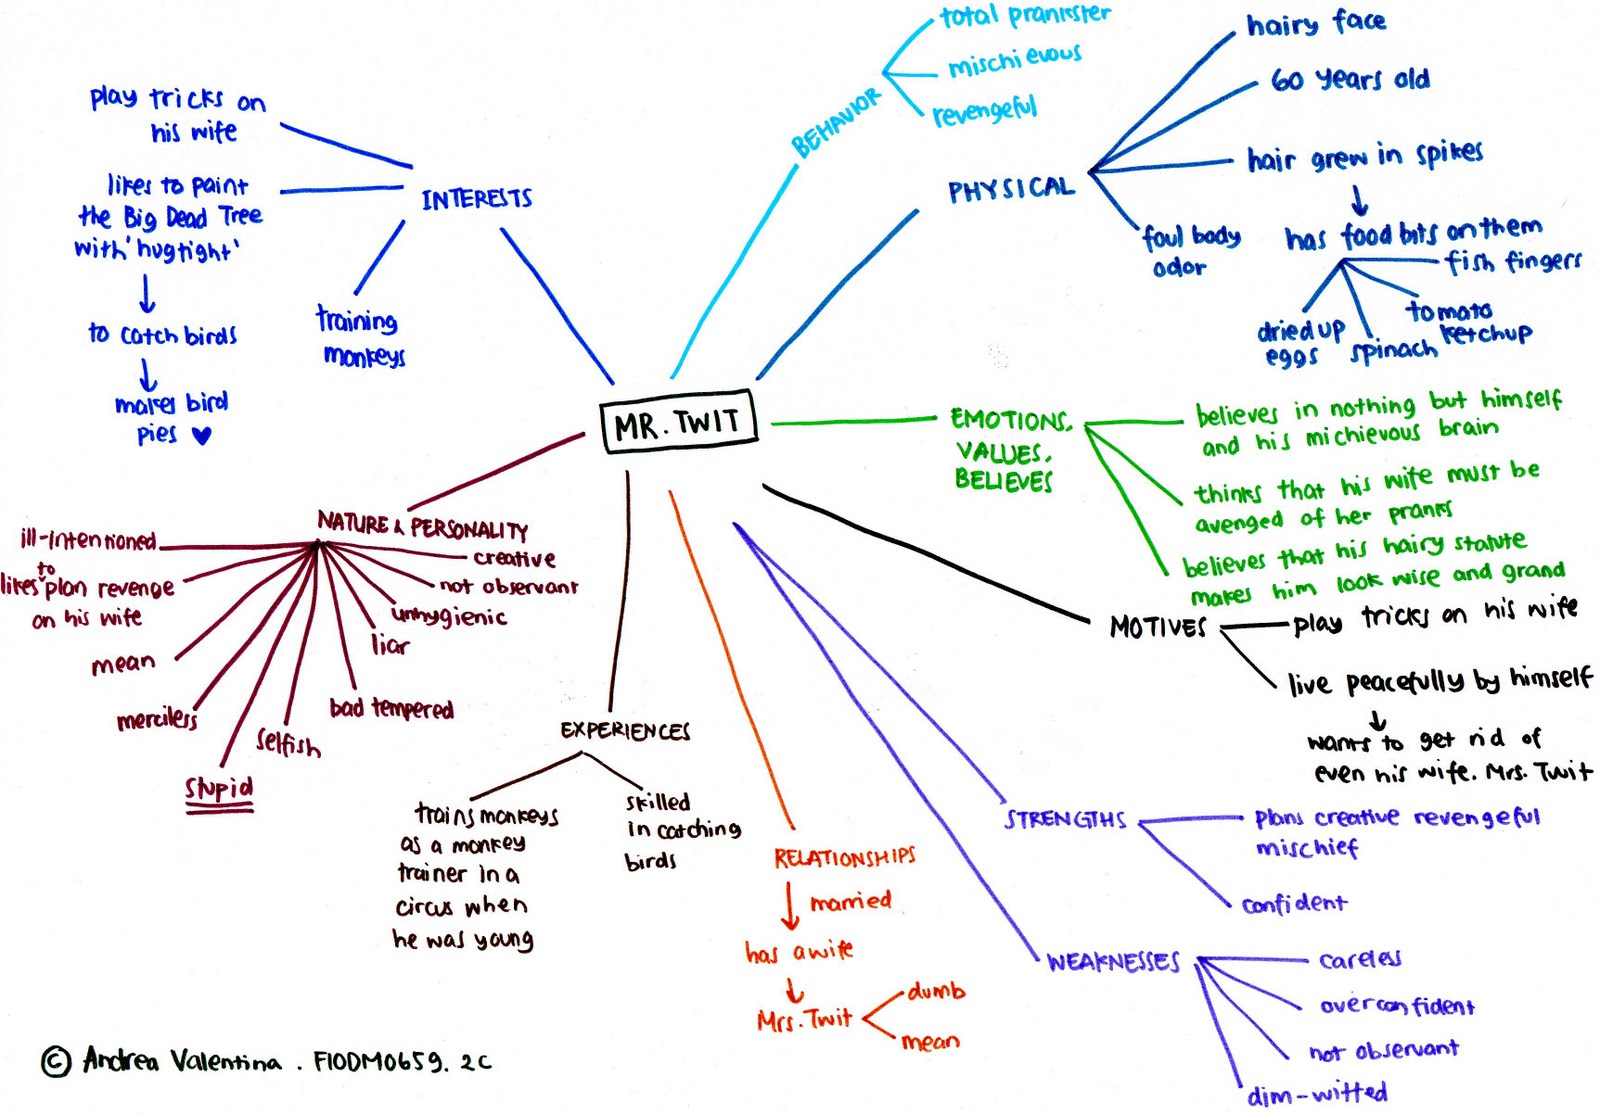 MR. TWIT
INTERESTS
play tricks on
his wife
likes to paint
the Big Dead Tree
with 'hugtight'
to catch birds
makes bird
pies ♥
training
monkeys
BEHAVIOR
total prankster
mischievous
revengeful
PHYSICAL
hairy face
60 years old
hair grew in spikes
has food bits on them
fish fingers
tomato
ketchup
spinach
dried up
eggs
foul body
odor
EMOTIONS,
VALUES,
BELIEVES
believes in nothing but himself
and his michievous brain
thinks that his wife must be
avenged of her pranks
believes that his hairy statute
makes him look wise and grand
MOTIVES
play tricks on his wife
live peacefully by himself
wants to get rid of
even his wife. Mrs. Twit
STRENGTHS
plans creative revengeful
mischief
confident
WEAKNESSES
careless
overconfident
not observant
dim-witted
RELATIONSHIPS
married
has a wife
Mrs. Twit
dumb
mean
EXPERIENCES
trains monkeys
as a monkey
trainer in a
circus when
he was young
skilled
in catching
birds
NATURE & PERSONALITY
creative
not observant
unhygienic
liar
bad tempered
selfish
stupid
merciless
mean
likes to plan revenge
on his wife
ill-intentioned
© Andrea Valentina . F10DM0659. 2C